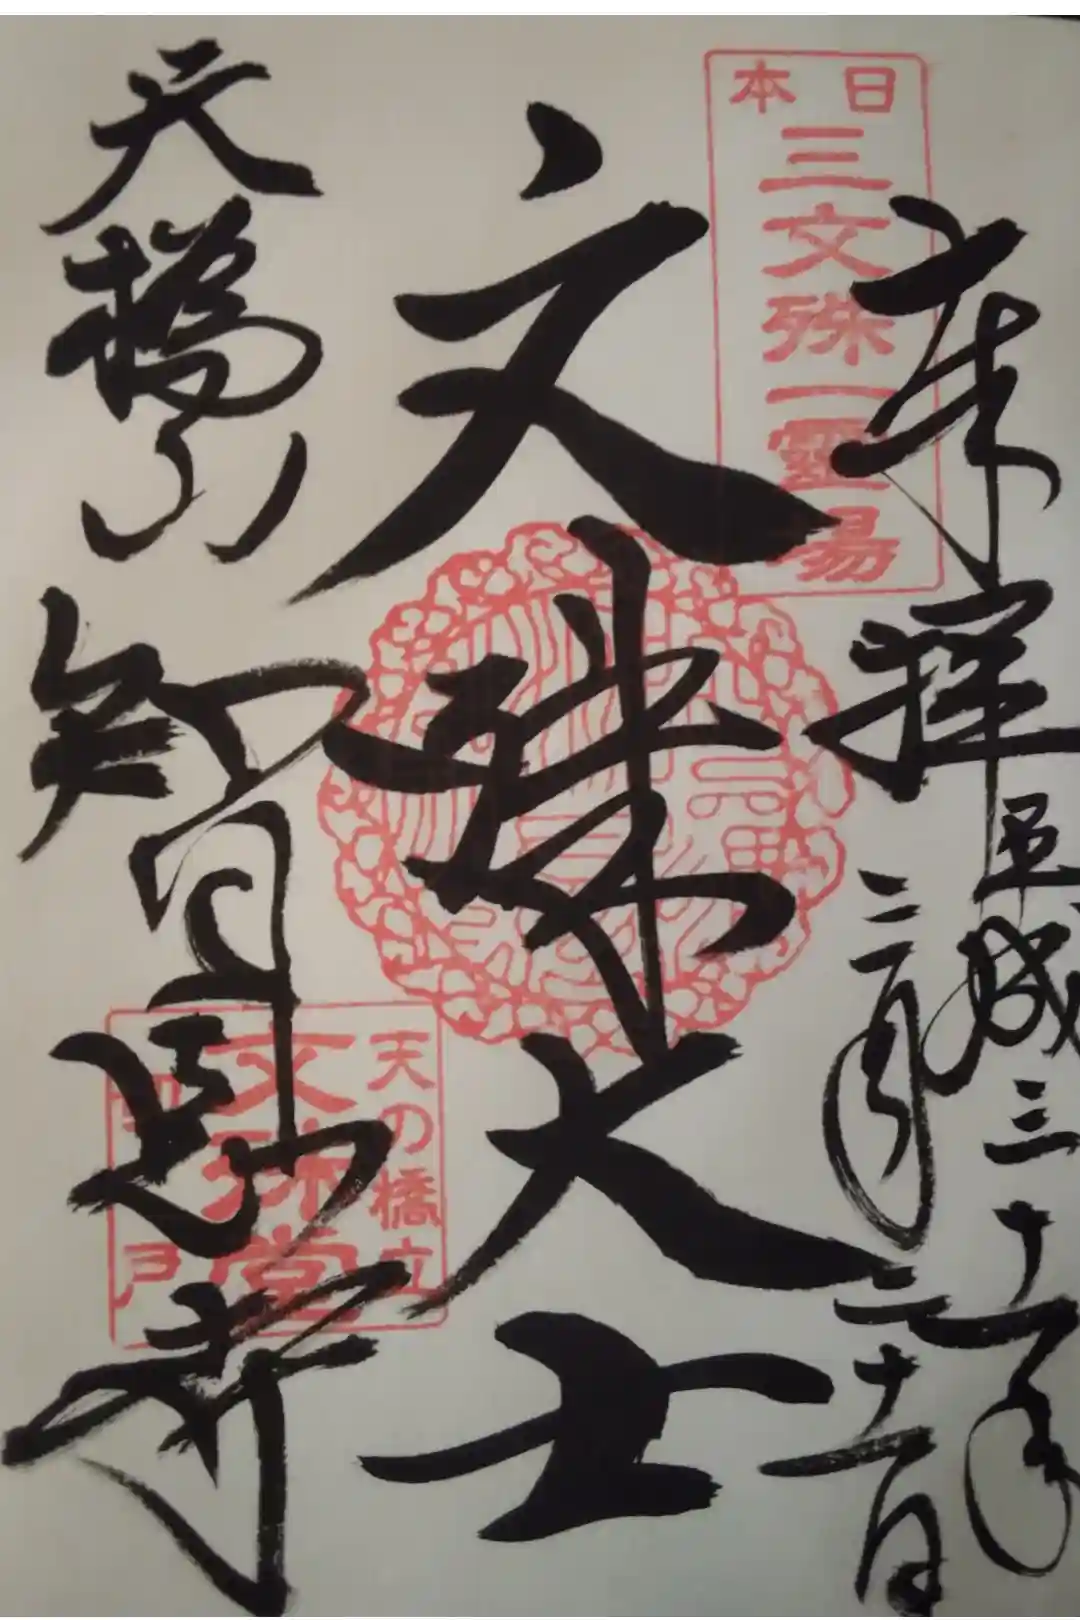 日本
三文殊一霊場
奉拝 平成三十一年
三月二十一日
文殊大士
天橋山 智恩寺
天の橋立
文殊堂
戸